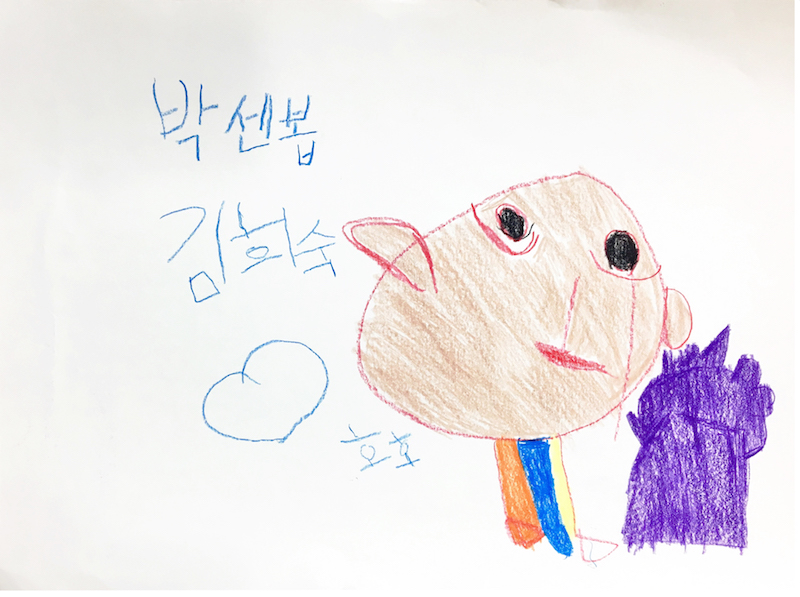 박센봅
김희숙
호호